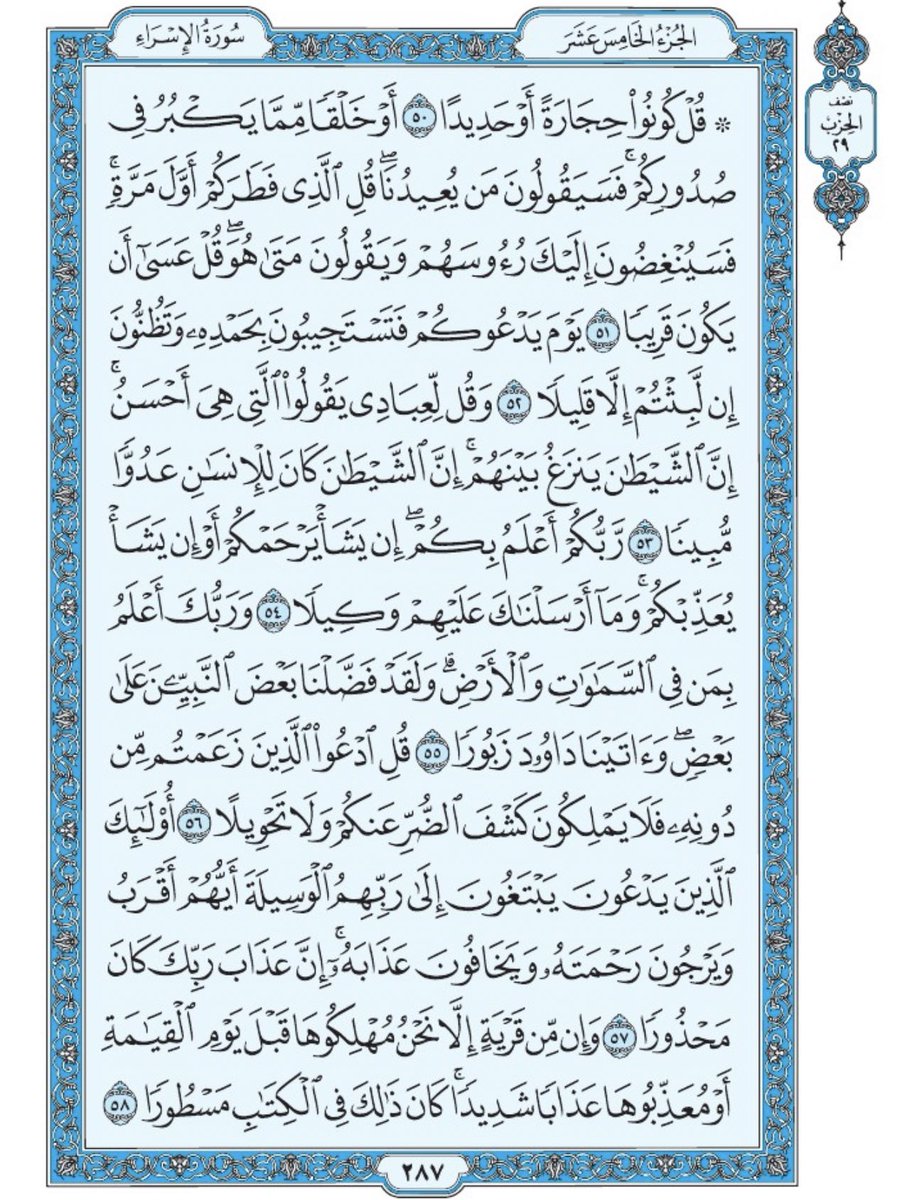 الجُزْءُ الخَامِسَ عَشَرَ
سُورَةُ الإِسْرَاءِ
نصف
الحِزْب
٢٩
۞ قُلْ كُونُوا۟ حِجَارَةً أَوْ حَدِيدًا ٥٠ أَوْ خَلْقًا مِّمَّا يَكْبُرُ فِى
صُدُورِكُمْ ۚ فَسَيَقُولُونَ مَن يُعِيدُنَا ۖ قُلِ ٱلَّذِى فَطَرَكُمْ أَوَّلَ مَرَّةٍ ۚ
فَسَيُنْغِضُونَ إِلَيْكَ رُءُوسَهُمْ وَيَقُولُونَ مَتَىٰ هُوَ ۖ قُلْ عَسَىٰٓ أَن
يَكُونَ قَرِيبًا ٥١ يَوْمَ يَدْعُوكُمْ فَتَسْتَجِيبُونَ بِحَمْدِهِۦ وَتَظُنُّونَ
إِن لَّبِثْتُمْ إِلَّا قَلِيلًا ٥٢ وَقُل لِّعِبَادِى يَقُولُوا۟ ٱلَّتِى هِىَ أَحْسَنُ ۚ
إِنَّ ٱلشَّيْطَٰنَ يَنزَغُ بَيْنَهُمْ ۚ إِنَّ ٱلشَّيْطَٰنَ كَانَ لِلْإِنسَٰنِ عَدُوًّا
مُّبِينًا ٥٣ رَّبُّكُمْ أَعْلَمُ بِكُمْ ۖ إِن يَشَأْ يَرْحَمْكُمْ أَوْ إِن يَشَأْ
يُعَذِّبْكُمْ ۚ وَمَآ أَرْسَلْنَٰكَ عَلَيْهِمْ وَكِيلًا ٥٤ وَرَبُّكَ أَعْلَمُ
بِمَن فِى ٱلسَّمَٰوَٰتِ وَٱلْأَرْضِ ۗ وَلَقَدْ فَضَّلْنَا بَعْضَ ٱلنَّبِيِّۦنَ عَلَىٰ
بَعْضٍ ۖ وَءَاتَيْنَا دَاوُۥدَ زَبُورًا ٥٥ قُلِ ٱدْعُوا۟ ٱلَّذِينَ زَعَمْتُم مِّن
دُونِهِۦ فَلَا يَمْلِكُونَ كَشْفَ ٱلضُّرِّ عَنكُمْ وَلَا تَحْوِيلًا ٥٦ أُو۟لَٰٓئِكَ
ٱلَّذِينَ يَدْعُونَ يَبْتَغُونَ إِلَىٰ رَبِّهِمُ ٱلْوَسِيلَةَ أَيُّهُمْ أَقْرَبُ
وَيَرْجُونَ رَحْمَتَهُۥ وَيَخَافُونَ عَذَابَهُۥٓ ۚ إِنَّ عَذَابَ رَبِّكَ كَانَ
مَحْذُورًا ٥٧ وَإِن مِّن قَرْيَةٍ إِلَّا نَحْنُ مُهْلِكُوهَا قَبْلَ يَوْمِ ٱلْقِيَٰمَةِ
أَوْ مُعَذِّبُوهَا عَذَابًا شَدِيدًا ۚ كَانَ ذَٰلِكَ فِى ٱلْكِتَٰبِ مَسْطُورًا ٥٨
٢٨٧